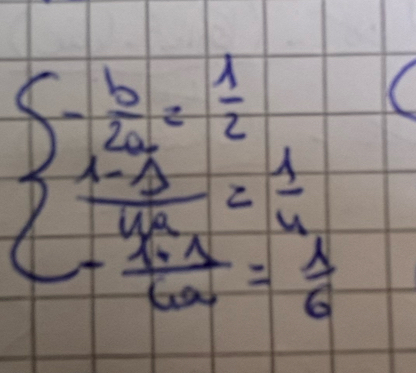 - b/2a = 1/2
1-Δ/4a = 1/4
- 1+Δ/4a = 1/6